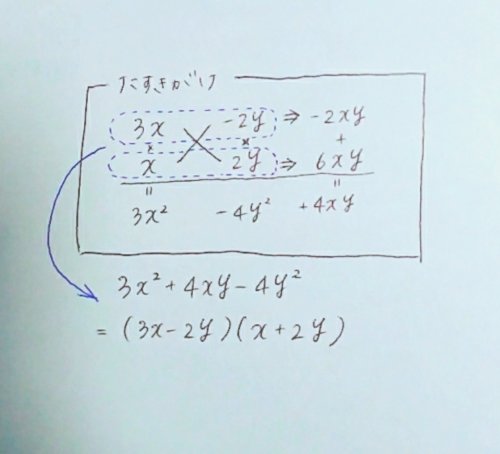 たすきがけ
3x -2y ⇒ -2xy
× × +
x 2y ⇒ 6xy
= = 
3x² -4y² +4xy
3x² + 4xy - 4y²
= (3x - 2y)(x + 2y)